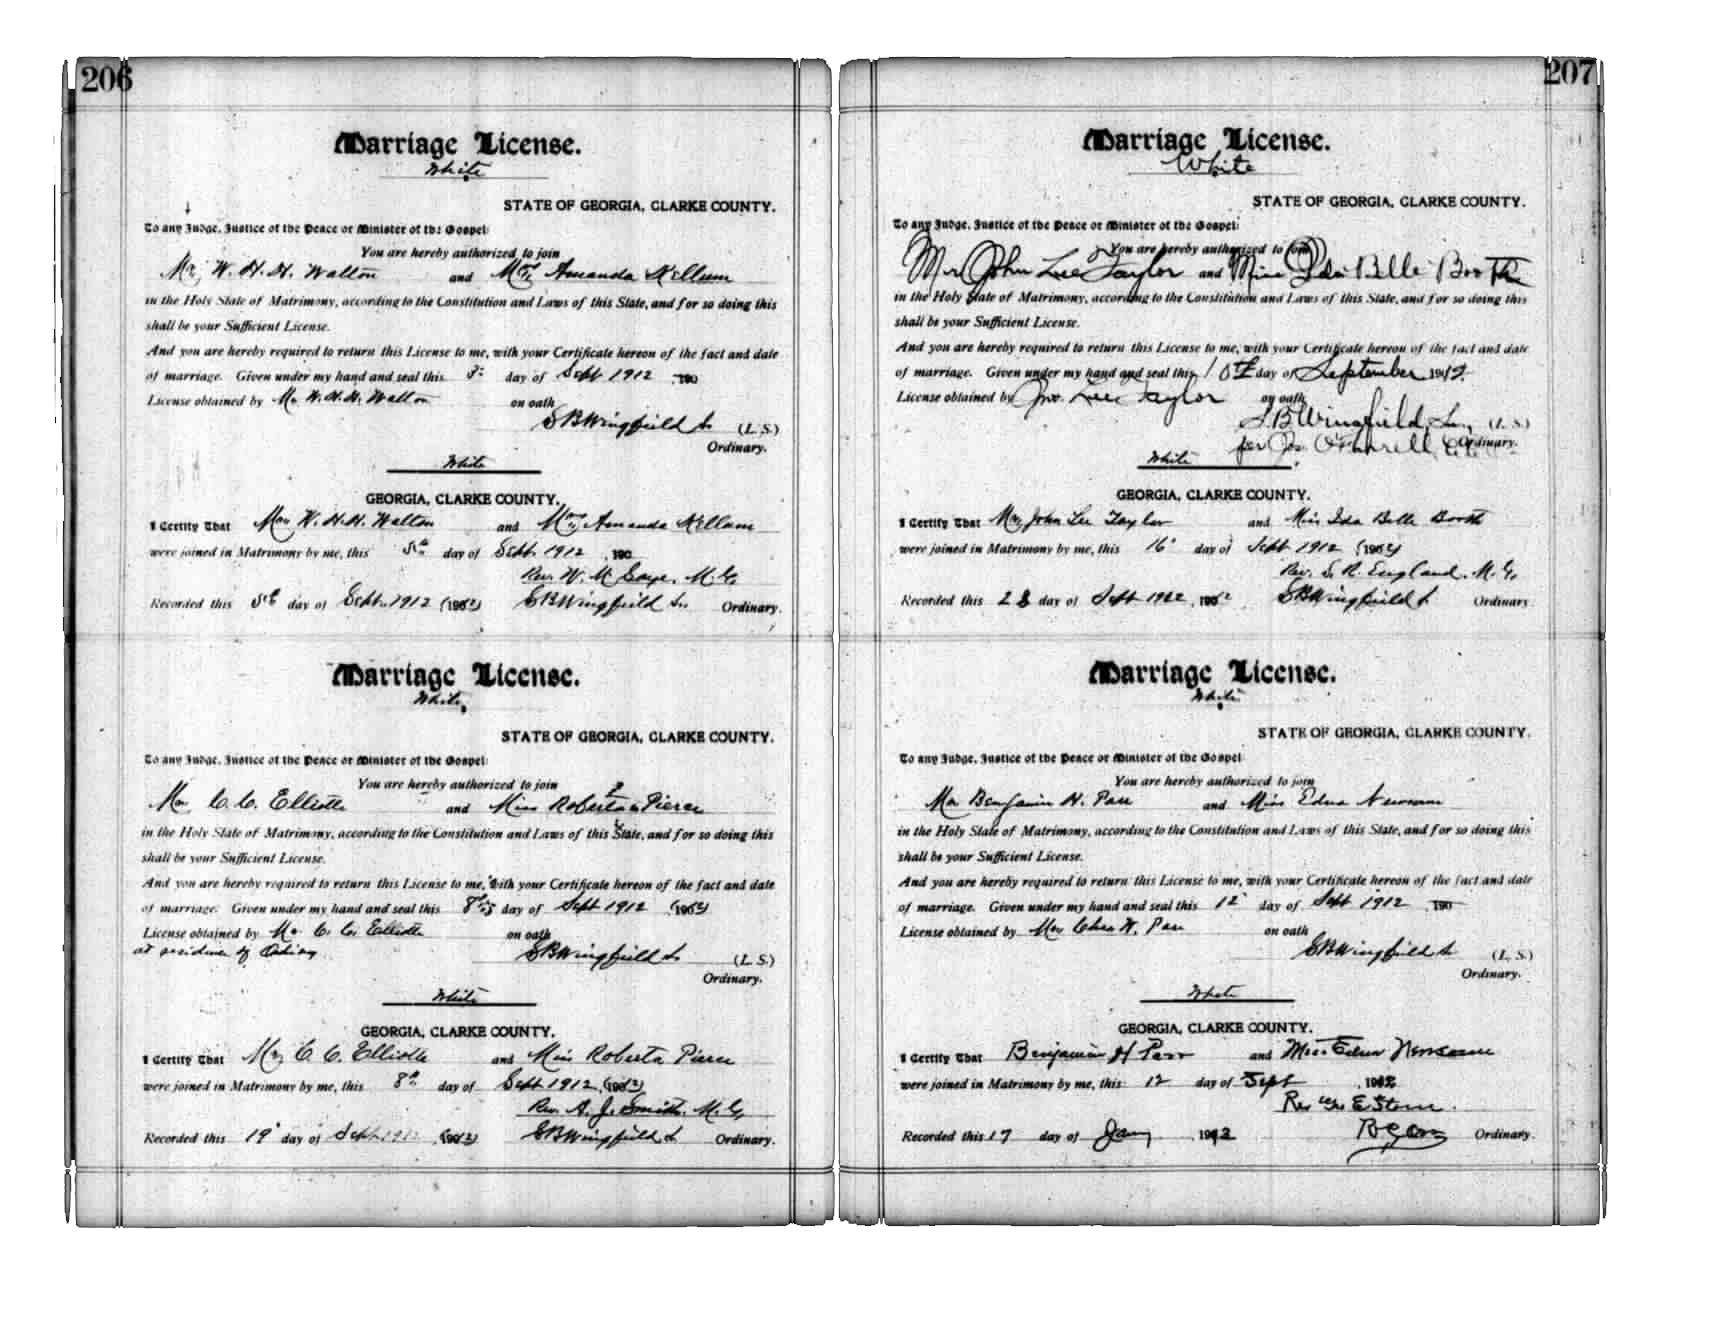 206
Marriage License.
White
STATE OF GEORGIA, CLARKE COUNTY.
To any Judge, Justice of the Peace or Minister of the Gospel:
You are hereby authorized to join
Mr W. H. H. Walton and Mrs Amanda Kellum
in the Holy State of Matrimony, according to the Constitution and Laws of this State, and for so doing this
shall be your Sufficient License.
And you are hereby required to return this License to me, with your Certificate hereon of the fact and date
of marriage. Given under my hand and seal this day of Sept 1912, 190
License obtained by Mr W. H. H. Walton on oath
S B Wingfield Sr (L. S.)
Ordinary.
White
GEORGIA, CLARKE COUNTY.
I Certify That Mr W. H. H. Walton and Mrs Amanda Kellum
were joined in Matrimony by me, this 5th day of Sept. 1912, 190
Rev. W. M. M. G.
Recorded this 5th day of Sept. 1912 (1912) S B Wingfield Sr. Ordinary.
Marriage License.
White
STATE OF GEORGIA, CLARKE COUNTY.
To any Judge, Justice of the Peace or Minister of the Gospel:
You are hereby authorized to join
Mr C. C. Elliotte and Miss Roberta Pierce
in the Holy State of Matrimony, according to the Constitution and Laws of this State, and for so doing this
shall be your Sufficient License.
And you are hereby required to return this License to me, with your Certificate hereon of the fact and date
of marriage. Given under my hand and seal this 8th day of Sept 1912 (1912)
License obtained by Mr C. C. Elliotte on oath
at residence of
S B Wingfield Sr (L. S.)
Ordinary.
White
GEORGIA, CLARKE COUNTY.
I Certify That Mr C. C. Elliotte and Miss Roberta Pierce
were joined in Matrimony by me, this 8th day of Sept 1912, (1912)
Rev. A. J. Smith. M. G.
Recorded this 19 day of Sept. 1912 (1912) S B Wingfield Sr Ordinary.
207
Marriage License.
White
STATE OF GEORGIA, CLARKE COUNTY.
To any Judge, Justice of the Peace or Minister of the Gospel:
You are hereby authorized to join
Mr John Lee Taylor and Miss Ida Belle Booth
in the Holy State of Matrimony, according to the Constitution and Laws of this State, and for so doing this
shall be your Sufficient License.
And you are hereby required to return this License to me, with your Certificate hereon of the fact and date
of marriage. Given under my hand and seal this 10th day of September 1912.
License obtained by Jno. Lee Taylor on oath
S B Wingfield, Sr., (L. S.)
per Jos. O'Farrell Ordinary.
White
GEORGIA, CLARKE COUNTY.
I Certify That Mr John Lee Taylor and Miss Ida Belle Booth
were joined in Matrimony by me, this 16 day of Sept 1912 (1912)
Rev. S. R. England. M. G.
Recorded this 28 day of Sept 1912, 1912 S B Wingfield Sr Ordinary.
Marriage License.
White
STATE OF GEORGIA, CLARKE COUNTY.
To any Judge, Justice of the Peace or Minister of the Gospel:
You are hereby authorized to join
Mr Benjamin H. Parr and Miss Edna Newsom
in the Holy State of Matrimony, according to the Constitution and Laws of this State, and for so doing this
shall be your Sufficient License.
And you are hereby required to return this License to me, with your Certificate hereon of the fact and date
of marriage. Given under my hand and seal this 12 day of Sept 1912, 190
License obtained by Mr Chas W. Parr on oath
S B Wingfield Sr (L. S.)
Ordinary.
White
GEORGIA, CLARKE COUNTY.
I Certify That Benjamin H Parr and Miss Edna Newsom
were joined in Matrimony by me, this 12 day of Sept, 1912
Rev Geo E Stone.
Recorded this 17 day of Jany Ordinary.